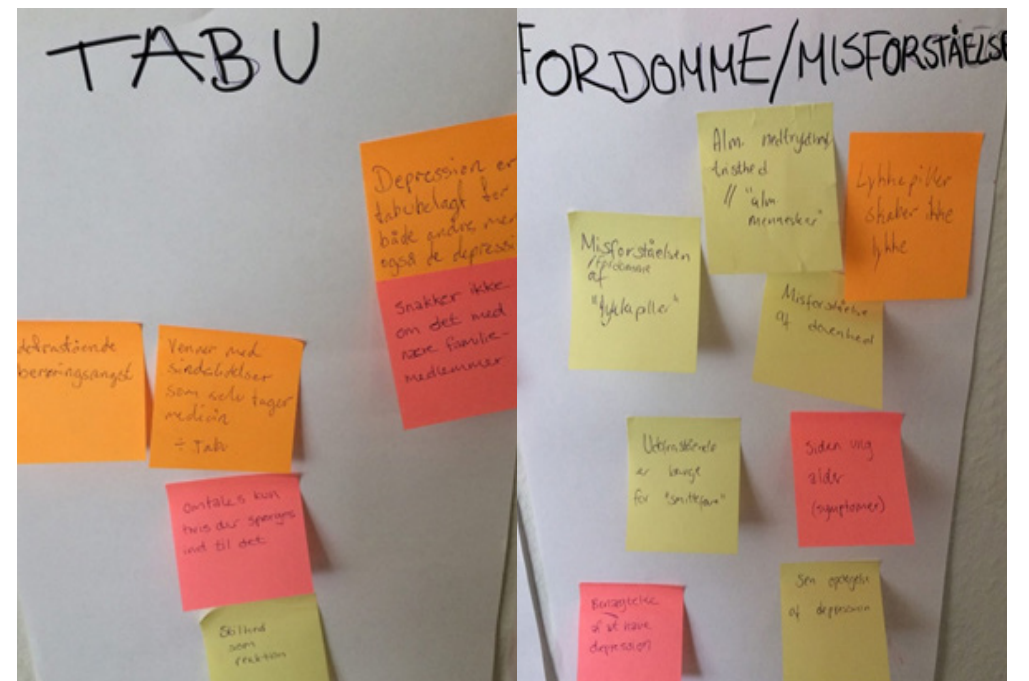 TABU
Depression er
tabubelagt for
både andre, men
også de depressi
Snakker ikke
om det med
nære familie-
medlemmer
berøringsangst
Venner med
sindslidelser
som selv tager
medicin
÷ Tabu
Omtales kun
hvis der spørges
ind til det
Stilhed
som
reaktion
FORDOMME/MISFORSTÅELSE
Alm. nedtrykthed
tristhed
// "alm.
mennesker"
Lykkepiller
skaber ikke
lykke
Misforståelsen
/fordomme
af
"lykkepiller"
Misforståelse
af dovenhed
Udefrastående
er bange
for "smittefare"
Siden ung
alder
(symptomer)
Benægtelse
af at have
depression
Sen opdagelse
af depression